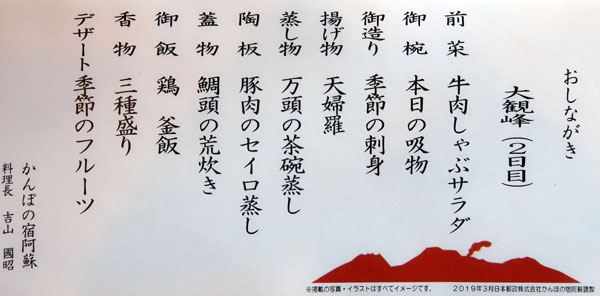 おしながき
大観峰（２日目）
前菜 牛肉しゃぶサラダ
御椀 本日の吸物
御造り 季節の刺身
揚げ物 天婦羅
蒸し物 万頭の茶碗蒸し
陶板 豚肉のセイロ蒸し
蓋物 鯛頭の荒炊き
御飯 鶏釜飯
香物 三種盛り
デザート 季節のフルーツ
かんぽの宿阿蘇
料理長 吉山 國昭
※掲載の写真・イラストはすべてイメージです。 2019年3月日本郵政株式会社かんぽの宿阿蘇調製